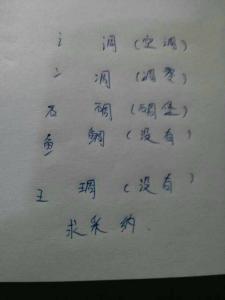 讠 调 (空调)
冫 凋 (凋零)
石 碉 (碉堡)
鱼 鲷 (没有)
王 琱 (没有)
求采纳.